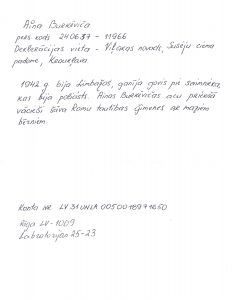 Aina Burkēviča
pers. kods 240637 - 11966
Deklarācijas vieta - Viļakas novads, Susāju ciema
padome, Keaveļava
1942 g. bija Limbažos, ganīja govis pie saimnieka,
kas bija policists. Ainas Burkēvičas acu priekšā
vācieši šāva Romu tautības ģimenes ar maziem
bērniem
Konta nr. LV31UNLA0050018971650
Rīga LV-1009
Labratorijas 25-23